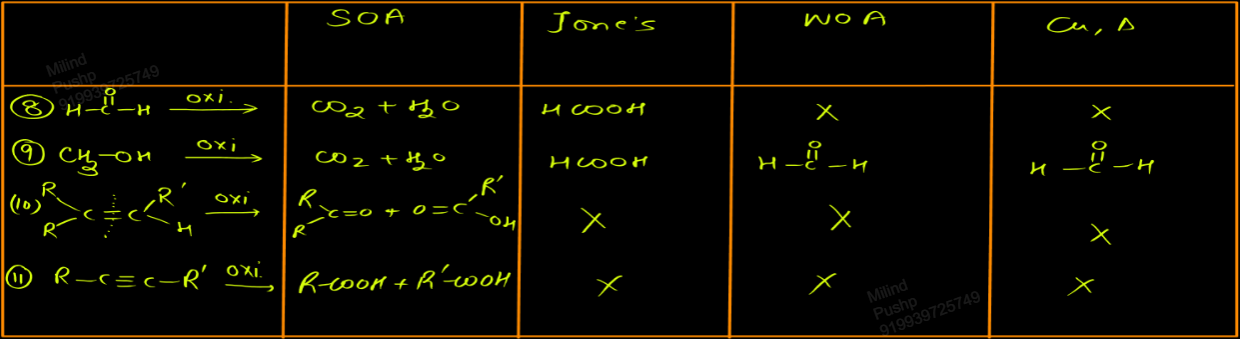 SOA Jone's WOA Cu, Δ
⑧ H-C(=O)-H →(oxi.) CO2 + H2O HCOOH X X
⑨ CH3-OH →(oxi) CO2 + H2O HCOOH H-C(=O)-H H-C(=O)-H
(10) R R C=C R' H →(oxi) R R C=O + O=C R' OH X X X
⑪ R-C≡C-R' →(oxi.) R-COOH + R'-COOH X X X
Milind
Pushp
919939725749
Milind
Pushp
919939725749